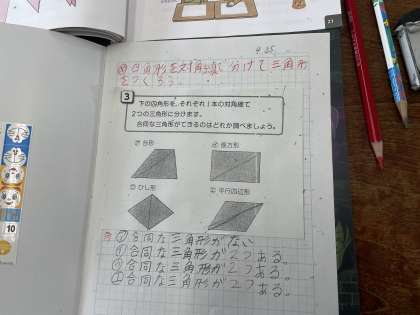 21
4.25
め 四角形を対角線で分けて三角形
をつくろう。
3
下の四角形を、それぞれ1本の対角線で
2つの三角形に分けます。
合同な三角形ができるのはどれか調べましょう。
㋐ 台形
㋑ 長方形
㋒ ひし形
㋓ 平行四辺形
㋐合同な三角形がない
㋑合同な三角形が2つある。
㋒合同な三角形が2つある。
㋓合同な三角形が2つある。
10